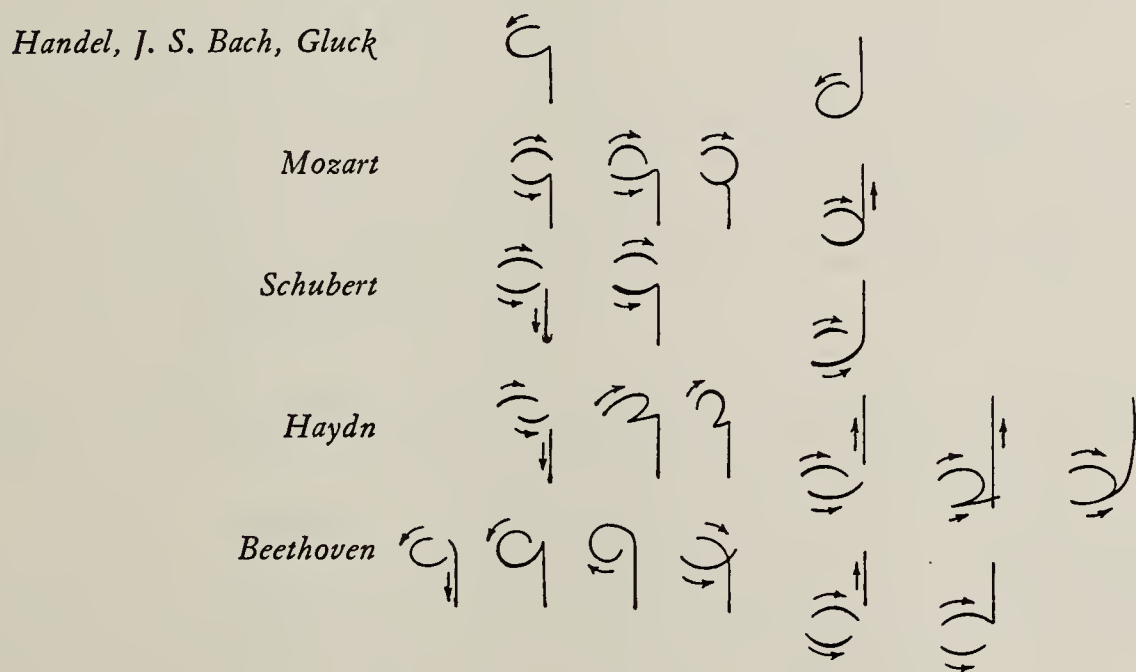 Handel, J. S. Bach, Gluck
Mozart
Schubert
Haydn
Beethoven